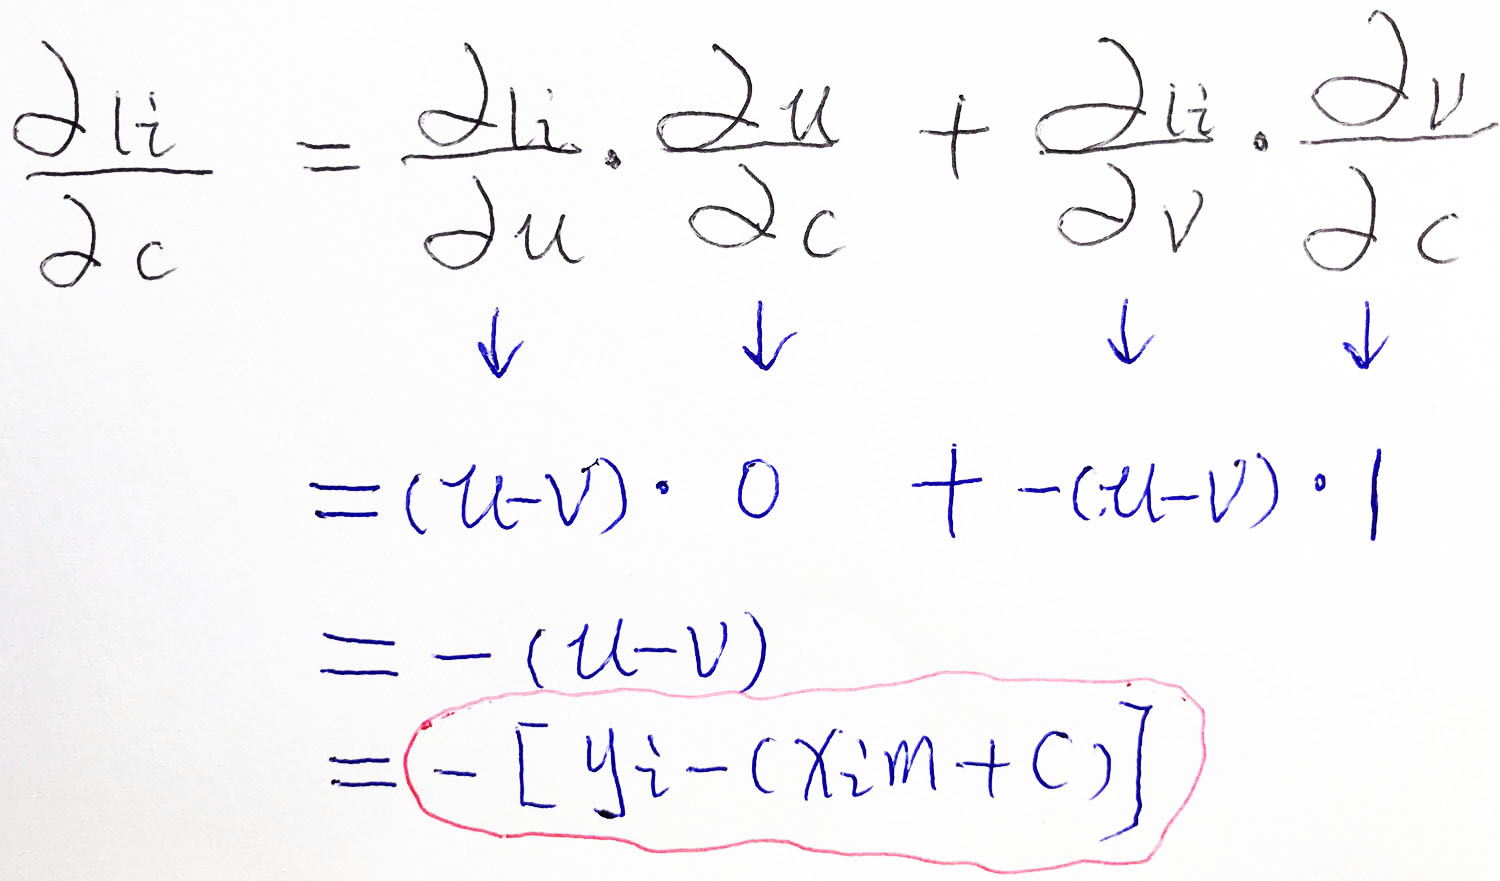 ∂li/∂c = ∂li/∂u · ∂u/∂c + ∂li/∂v · ∂v/∂c
↓ ↓ ↓ ↓
= (u-v) · 0 + -(u-v) · 1
= -(u-v)
= -[yi-(xim+c)]